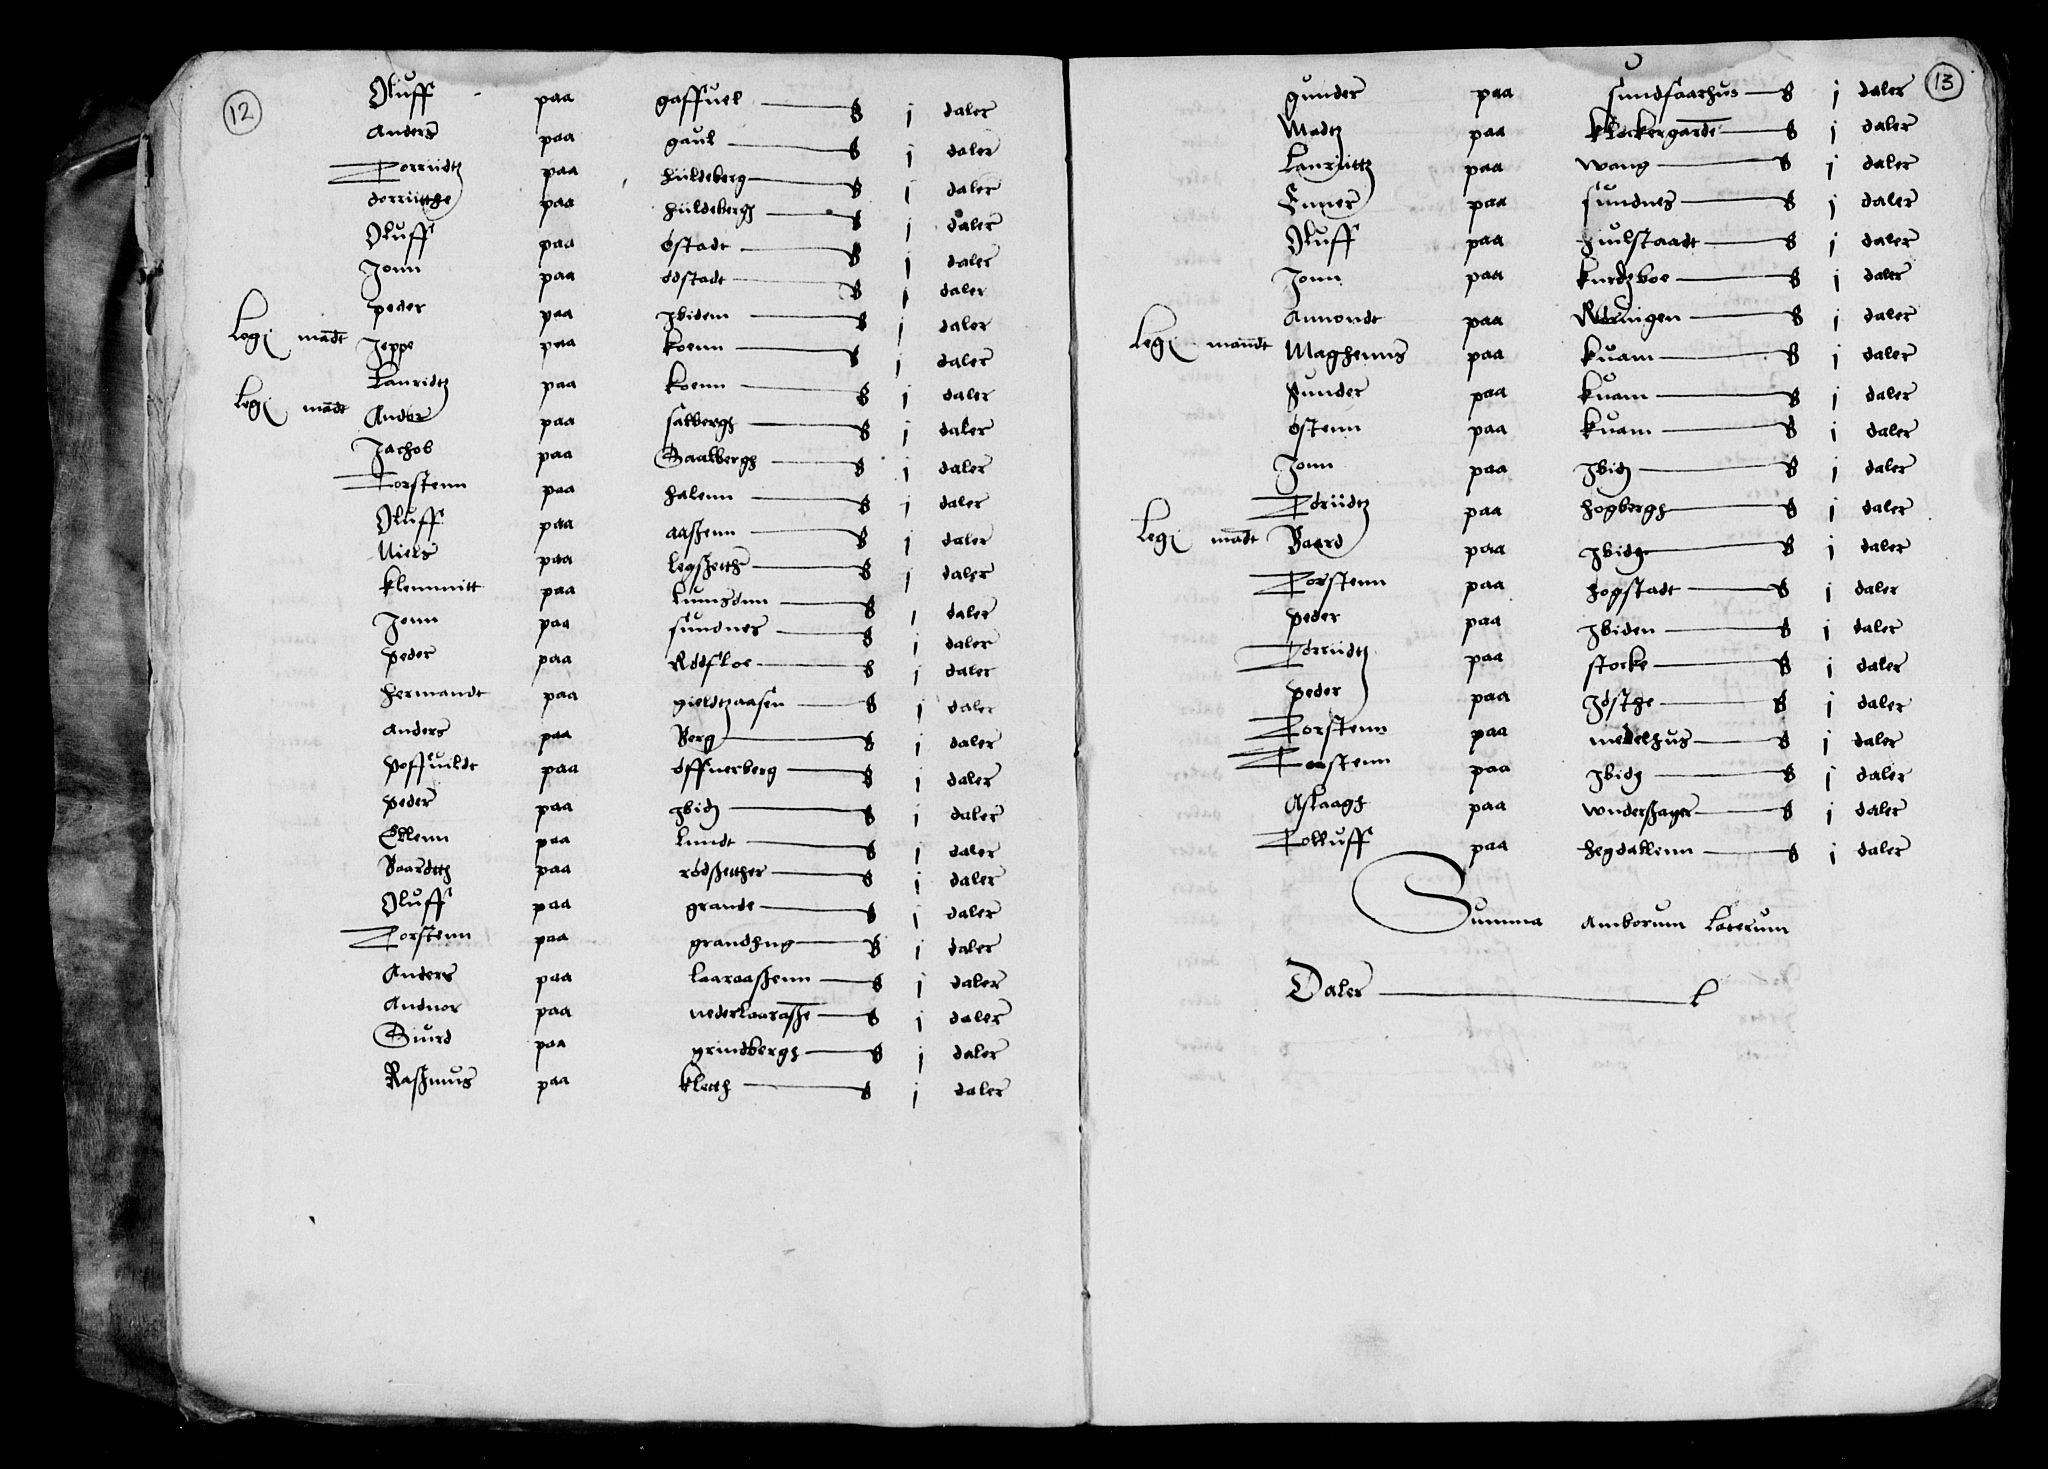 12
Oluff paa gaffuel — S j daler
Anders paa gaul — S j daler
Torriidtz paa hüldeberg — S j daler
dorriitthe paa hüldebergs — S j daler
Oluff paa östadt — S j daler
Jonn paa ödstadt — S j daler
peder paa Jbidem — S j daler
Legs mādt Jeppe paa koenn — S j daler
Lauridtz paa koenn — S j daler
Legs mādt Ander paa salbergs — S j daler
Jachob paa Saalbergs — S j daler
Torstenn paa halenn — S j daler
Oluff paa aaszenn — S j daler
Niels paa legszetth — S j daler
Klemmitt paa — S j daler
Jonn paa sundnes — S j daler
Peder paa Rödfloe — S j daler
Hermandt paa gieldtzaasen — S j daler
Anders paa Berg — S j daler
Poffuildt paa öffuerberg — S j daler
Peder paa Jbidz — S j daler
Ellenn paa Lundt — S j daler
Baardtth paa rödszetther — S j daler
Oluff paa grande — S j daler
Torstenn paa grandhug — S j daler
Anders paa laaraaszenn — S j daler
Andnor paa nederlaaraasze — S j daler
Siurd paa grindbergs — S j daler
Raszmus paa kletth — S j daler
13
gunder paa sundsaarhus — S j daler
Madtz paa klockergarde — S j daler
Lauriittz paa wang — S j daler
Enner paa sundnes — S j daler
Oluff paa huilstaadt — S j daler
Jonn paa kurdzboe — S j daler
Amondt paa Röringen — S j daler
Legs mandt Maghenns paa kuam — S j daler
Gunder paa kuam — S j daler
östenn paa kuam — S j daler
Jonn paa Jbidz — S j daler
Toriidtz paa hogbergs — S j daler
Legs mādt Baard paa Jbidz — S j daler
Torstenn paa hogstadt — S j daler
Peder paa Jbiden — S j daler
Torriidtz paa stocke — S j daler
Peder paa Jösthe — S j daler
Torstenn paa medelhus — S j daler
Torstenn paa Jbidz — S j daler
Aslaags paa wnderszager — S j daler
Tolluff paa hegdallenn — S j daler
Summa Amborum Laterum
Daler — L